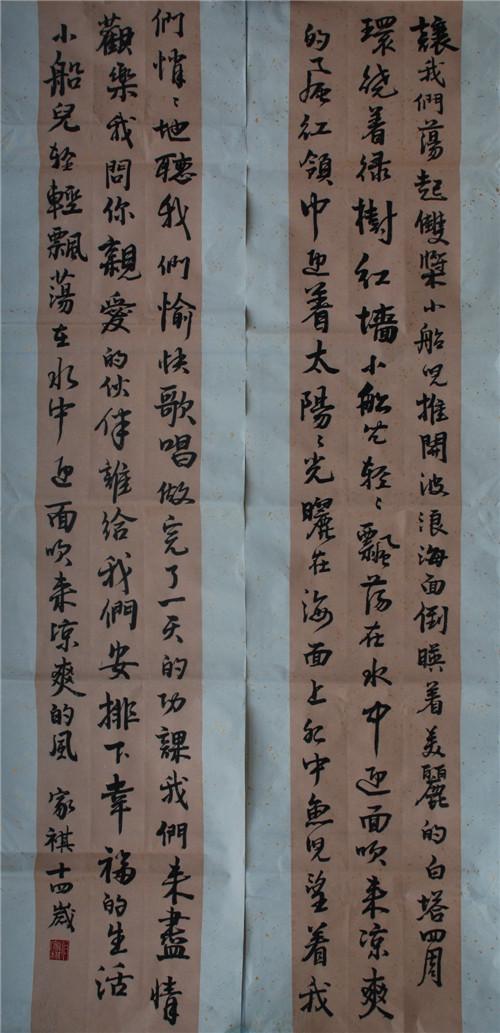 讓我們蕩起雙槳小船児推開波浪海面倒暎着美麗的白塔四周
環绕着绿樹红墻小船児轻〻飄荡在水中迎面吹来凉爽
的红領巾迎着太陽〻光曬在海面上水中魚児望着我
們悄〻地聽我們愉快歌唱做完了一天的功課我們来盡情
觀樂我問你親愛的伙伴誰給我們安排下幸福的生活
小船兒轻輕飄蕩在水中迎面吹来凉爽的風 家祺十四歲